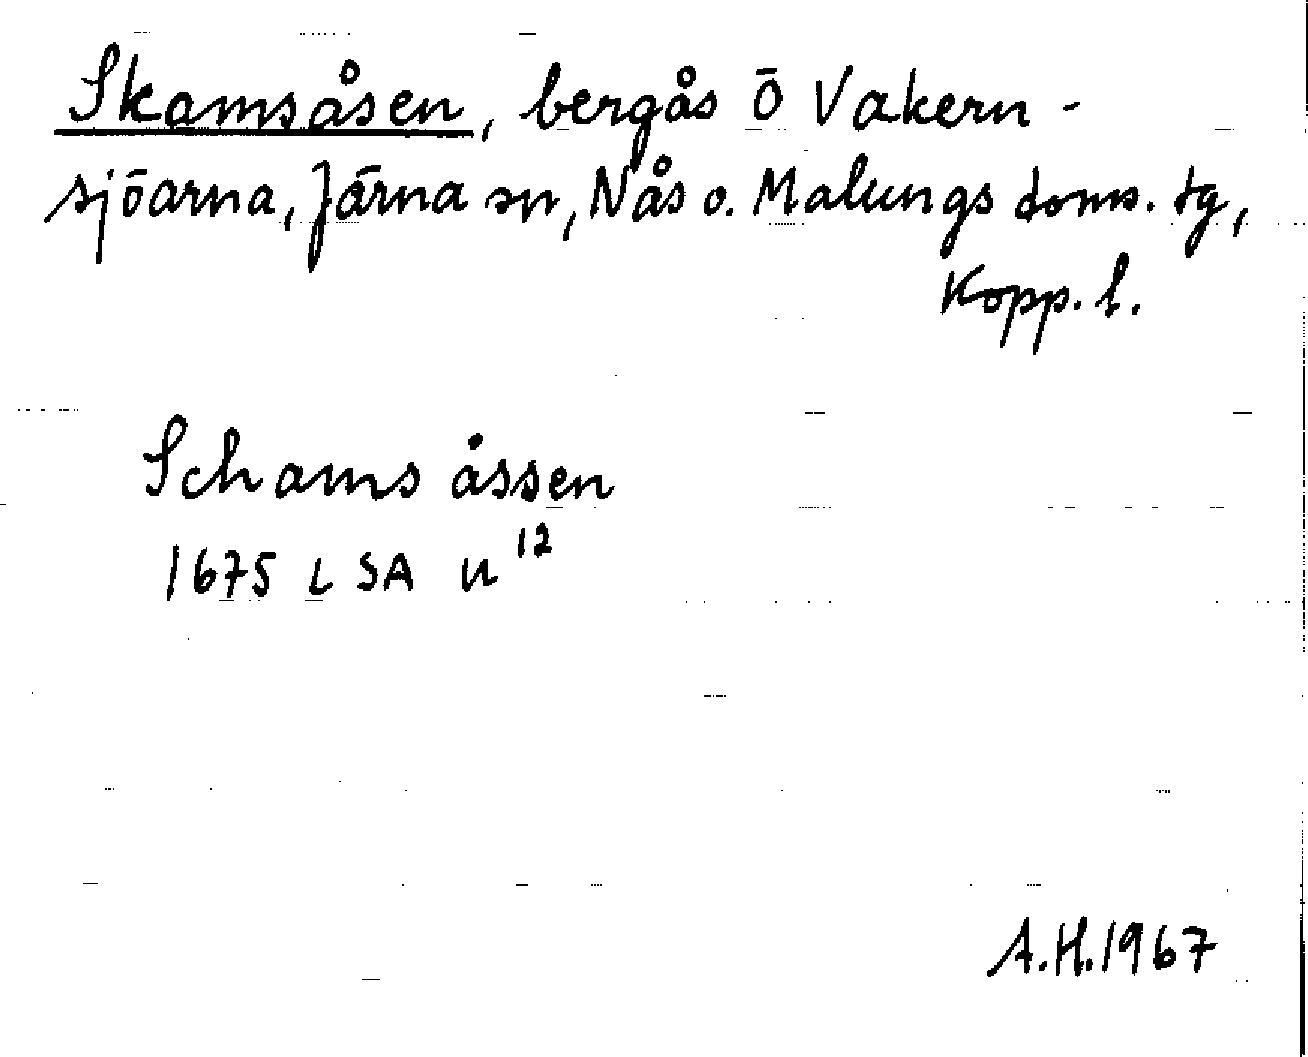 Skamsåsen, bergås Ö Vakern-
sjöarna, Järna sn, Nås o. Malungs doms. tg,
Kopp. l.
Schams åssen
1675 LSA u 12
A.H. 1967